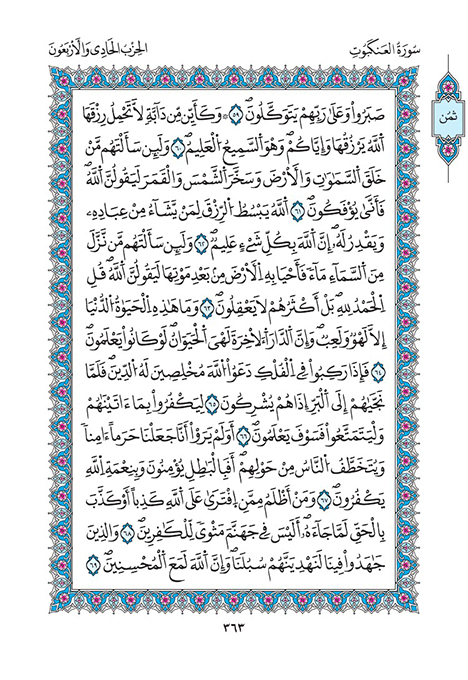 سُورَةُ الْعَنكَبُوتِ
الحِزْبُ الحَادِي وَالْأَرْبَعُونَ
ثُمُن
صَبَرُواْ وَعَلَىٰ رَبِّهِمْ يَتَوَكَّلُونَۖ ٥٩ وَكَأَيِّن مِّن دَآبَّةٖ لَّا تَحْمِلُ رِزْقَهَا
اَ۬للَّهُ يَرْزُقُهَا وَإِيَّاكُمْۖ وَهُوَ اَ۬لسَّمِيعُ اُ۬لْعَلِيمُۖ ٦٠ وَلَئِن سَأَلْتَهُم مَّنْ
خَلَقَ اَ۬لسَّمَٰوَٰتِ وَالْأَرْضَ وَسَخَّرَ اَ۬لشَّمْسَ وَالْقَمَرَ لَيَقُولُنَّ اَ۬للَّهُۖ
فَأَنَّىٰ يُؤْفَكُونَۖ ٦١ اَ۬للَّهُ يَبْسُطُ اُ۬لرِّزْقَ لِمَنْ يَّشَآءُ مِنْ عِبَادِهِۦ
وَيَقْدِرُ لَهُۥٓۖ إِنَّ اَ۬للَّهَ بِكُلِّ شَےْءٍ عَلِيمٞۖ ٦٢ وَلَئِن سَأَلْتَهُم مَّن نَّزَّلَ
مِنَ اَ۬لسَّمَآءِ مَآءٗ فَأَحْيَا بِهِ اِ۬لْأَرْضَ مِنۢ بَعْدِ مَوْتِهَا لَيَقُولُنَّ اَ۬للَّهُۖ قُلِ
اِ۬لْحَمْدُ لِلهِۖ بَلْ أَكْثَرُهُمْ لَا يَعْقِلُونَۖ ٦٣ وَمَا هَٰذِهِ اِ۬لْحَيَوٰةُ اُ۬لدُّنْيَآ
إِلَّا لَهْوٞ وَلَعِبٞۖ وَإِنَّ اَ۬لدَّارَ اَ۬لْأَخِرَةَ لَهِيَ اَ۬لْحَيَوَانُۖ لَوْ كَانُواْ يَعْلَمُونَۖ
٦٤ فَإِذَا رَكِبُواْ فِے اِ۬لْفُلْكِ دَعَوُاْ اُ۬للَّهَ مُخْلِصِينَ لَهُ اُ۬لدِّينَۖ فَلَمَّا
نَجَّيٰهُمْ إِلَى اَ۬لْبَرِّ إِذَا هُمْ يُشْرِكُونَ ٦٥ لِيَكْفُرُواْ بِمَآ ءَاتَيْنَٰهُمْ
وَلِيَتَمَتَّعُواْۖ فَسَوْفَ يَعْلَمُونَۖ ٦٦ أَوَلَمْ يَرَوَاْ اَنَّا جَعَلْنَا حَرَماً اٰمِناٗ
وَيُتَخَطَّفُ اُ۬لنَّاسُ مِنْ حَوْلِهِمُۥٓۖ أَفَبِالْبَٰطِلِ يُؤْمِنُونَ وَبِنِعْمَةِ اِ۬للَّهِ
يَكْفُرُونَۖ ٦٧ وَمَنَ اَظْلَمُ مِمَّنِ اِ۪فْتَرَىٰ عَلَى اَ۬للَّهِ كَذِباً اَوْ كَذَّبَ
بِالْحَقِّ لَمَّا جَآءَهُۥٓۖ أَلَيْسَ فِے جَهَنَّمَ مَثْوىٗ لِّلْكٰ۪فِرِينَۖ ٦٨ وَالذِينَ
جَٰهَدُواْ فِينَا لَنَهْدِيَنَّهُمْ سُبُلَنَاۖ وَإِنَّ اَ۬للَّهَ لَمَعَ اَ۬لْمُحْسِنِينَۖ ٦٩
٣٦٣